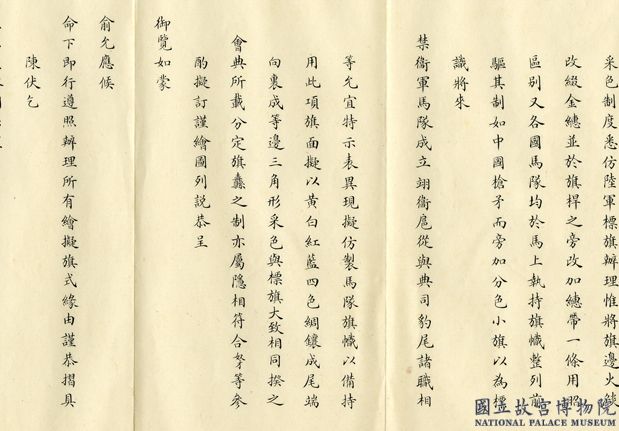 采色制度悉仿陸軍標旗辦理惟將旗邊火燄
改綴金總並於旗桿之旁改加總帶一條用昭
區別又各國馬隊均於馬上執持旗幟整列前
驅其制如中國槍矛而旁加分色小旗以為標
識將來
禁衞軍馬隊成立翊衞扈從與典司豹尾諸職相
等允宜特示表異現擬仿製馬隊旗幟以備持
用此項旗面擬以黃白紅藍四色綢鑲成尾端
向裏成等邊三角形采色與標旗大致相同揆之
會典所載分定旗纛之制亦屬隱相符合等參
酌擬訂謹繪圖列說恭呈
御覽如蒙
俞允應候
命下即行遵照辦理所有繪擬旗式緣由謹恭摺具
陳伏乞
國立故宮博物院
NATIONAL PALACE MUSEUM